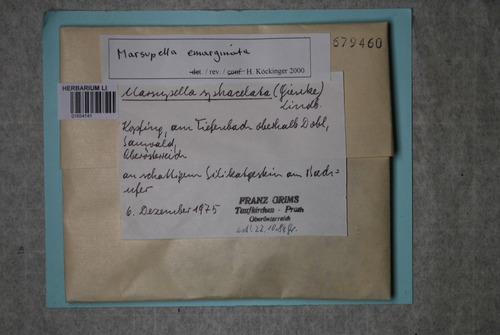 679460
Marsupella emarginata
det. / rev. / conf. H. Köckinger 2000
HERBARIUM LI
Marsupella sphacelata (Gieseke)
Lindb.
Kopfing, am Tiefenbach oberhalb Dobl,
Sauwald,
Oberösterreich
an schattigem Silikatgestein am Bach-
ufer
6. Dezember 1975
FRANZ GRIMS
Taufkirchen - Pram
Oberösterreich